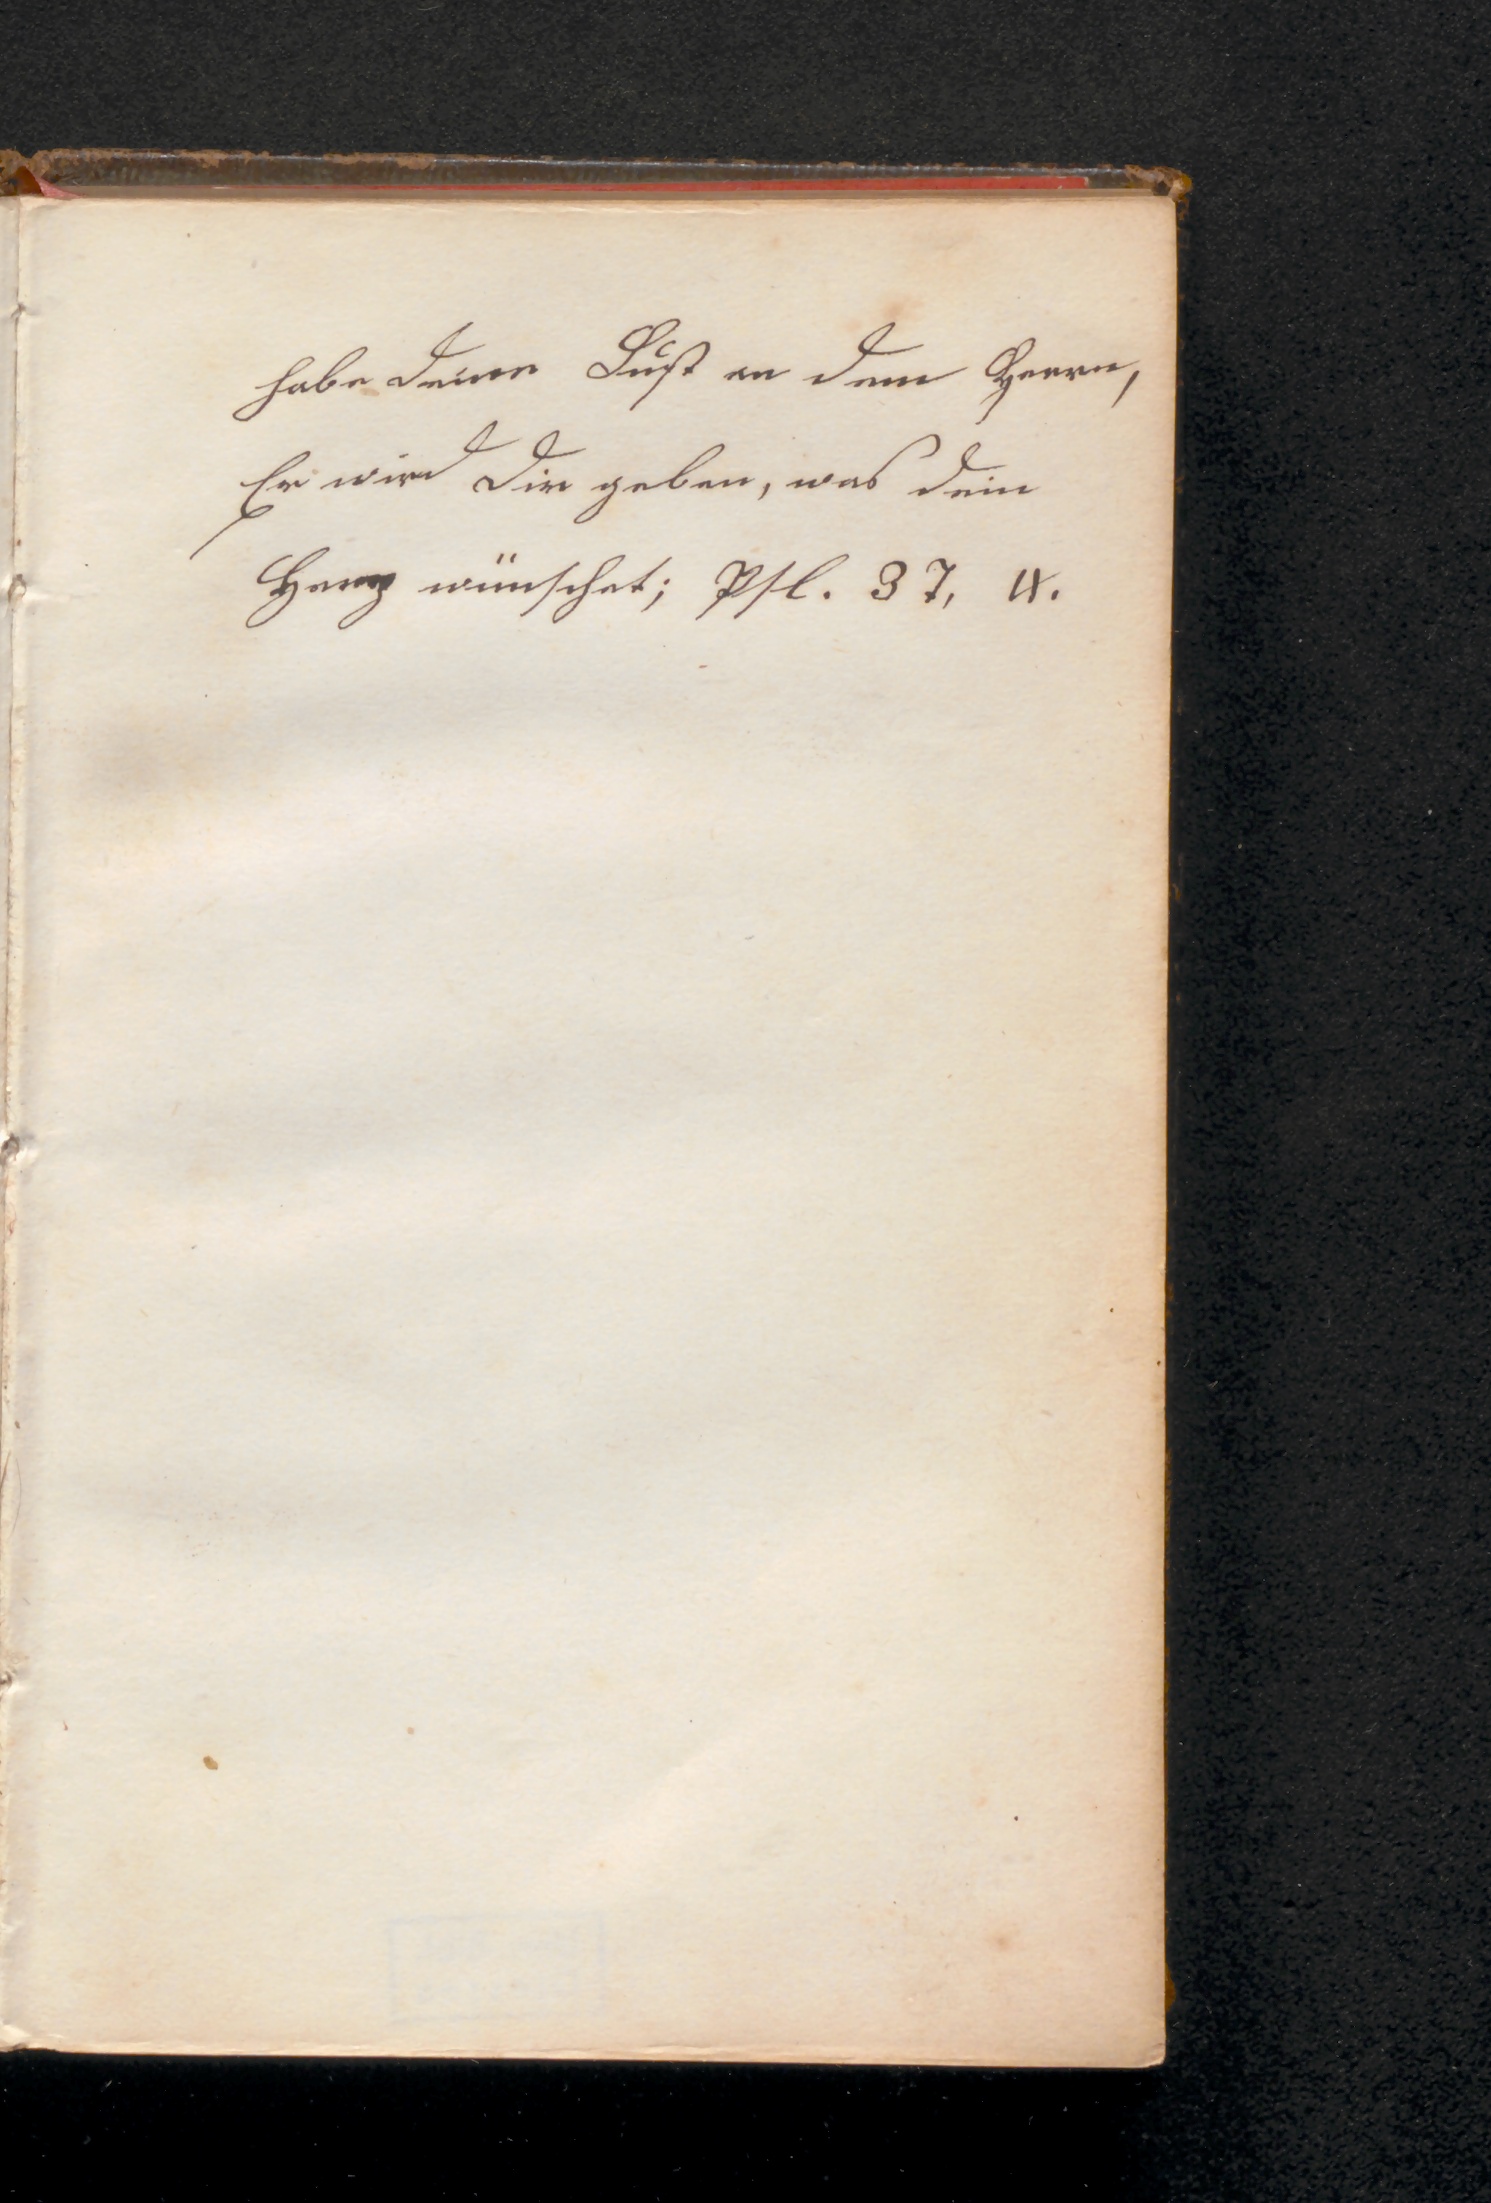 habe deine Lust an dem Herrn,
Er wird Dir geben, was dein
Herz wünschet; Psl. 37, 4.